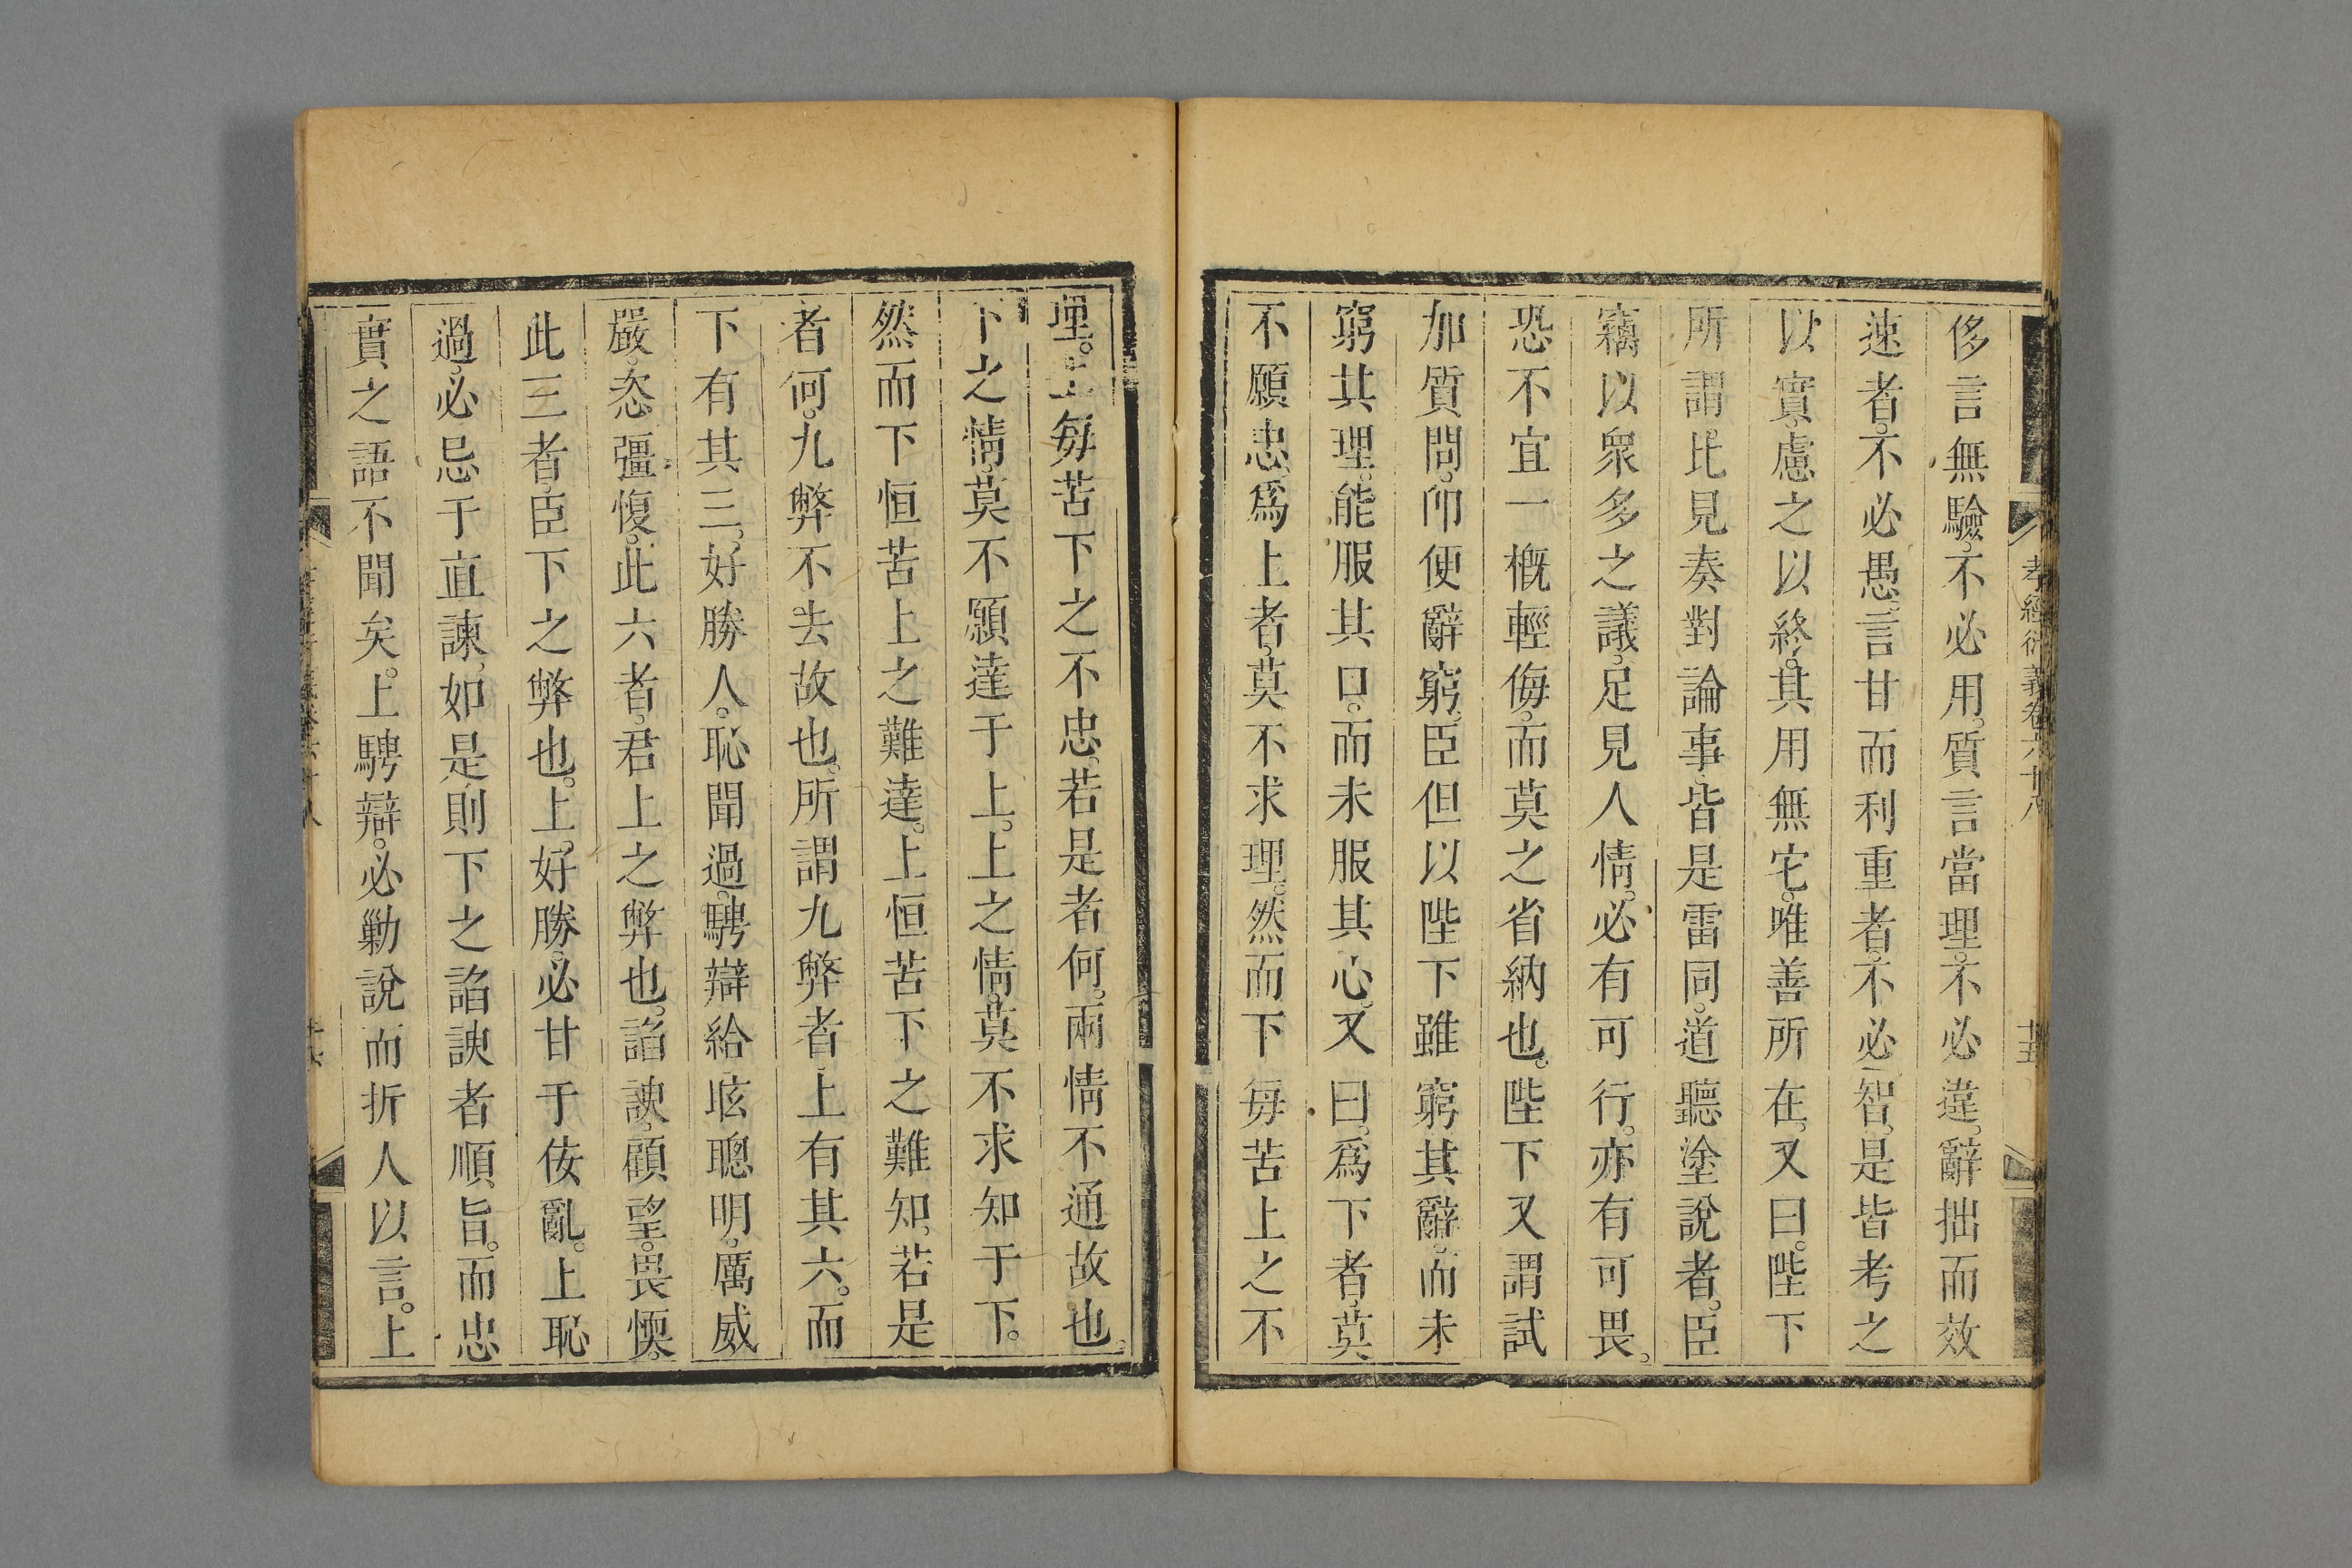 孝經衍義卷六十八
十五
侈言無驗。不必用。質言當理。不必違。辭拙而效
速者。不必愚。言甘而利重者。不必智。是皆考之
以實。慮之以終。其用無宅。唯善所在。又曰。陛下
所謂。比見奏對論事。皆是雷同。道聽塗說者。臣
竊以衆多之議。足見人情。必有可行。亦有可畏。
恐不宜一概輕侮。而莫之省納也。陛下又謂試
加質問。卽便辭窮。臣但以陛下雖窮其辭。而未
窮其理。能服其口。而未服其心。又曰。爲下者。莫
不願忠。爲上者。莫不求理。然而下每苦上之不
理。上每苦下之不忠。若是者何。兩情不通故也。
下之情。莫不願達于上。上之情。莫不求知于下。
然而下恒苦上之難達。上恒苦下之難知。若是
者何。九弊不去故也。所謂九弊者。上有其六。而
下有其三。好勝人。恥聞過。騁辯給。眩聰明。厲威
嚴。恣彊愎。此六者。君上之弊也。諂諛。顧望。畏愞。
此三者。臣下之弊也。上。好勝。必甘于佞亂。上恥
過。必忌于直諫。如是則下之諂諛者順旨。而忠
實之語不聞矣。上騁辯。必勦說而折人以言。上